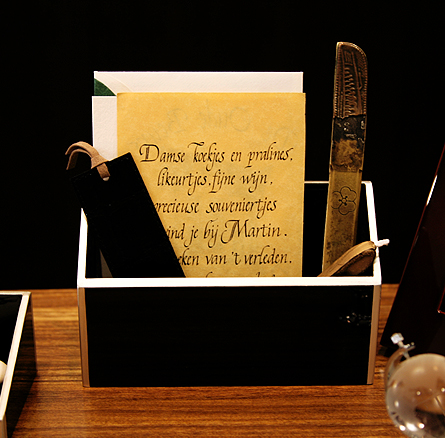 Damse koekjes en pralines,
likeurtjes, fijne wijn,
precieuse souveniertjes
vind je bij Martin.
van 't verleden.